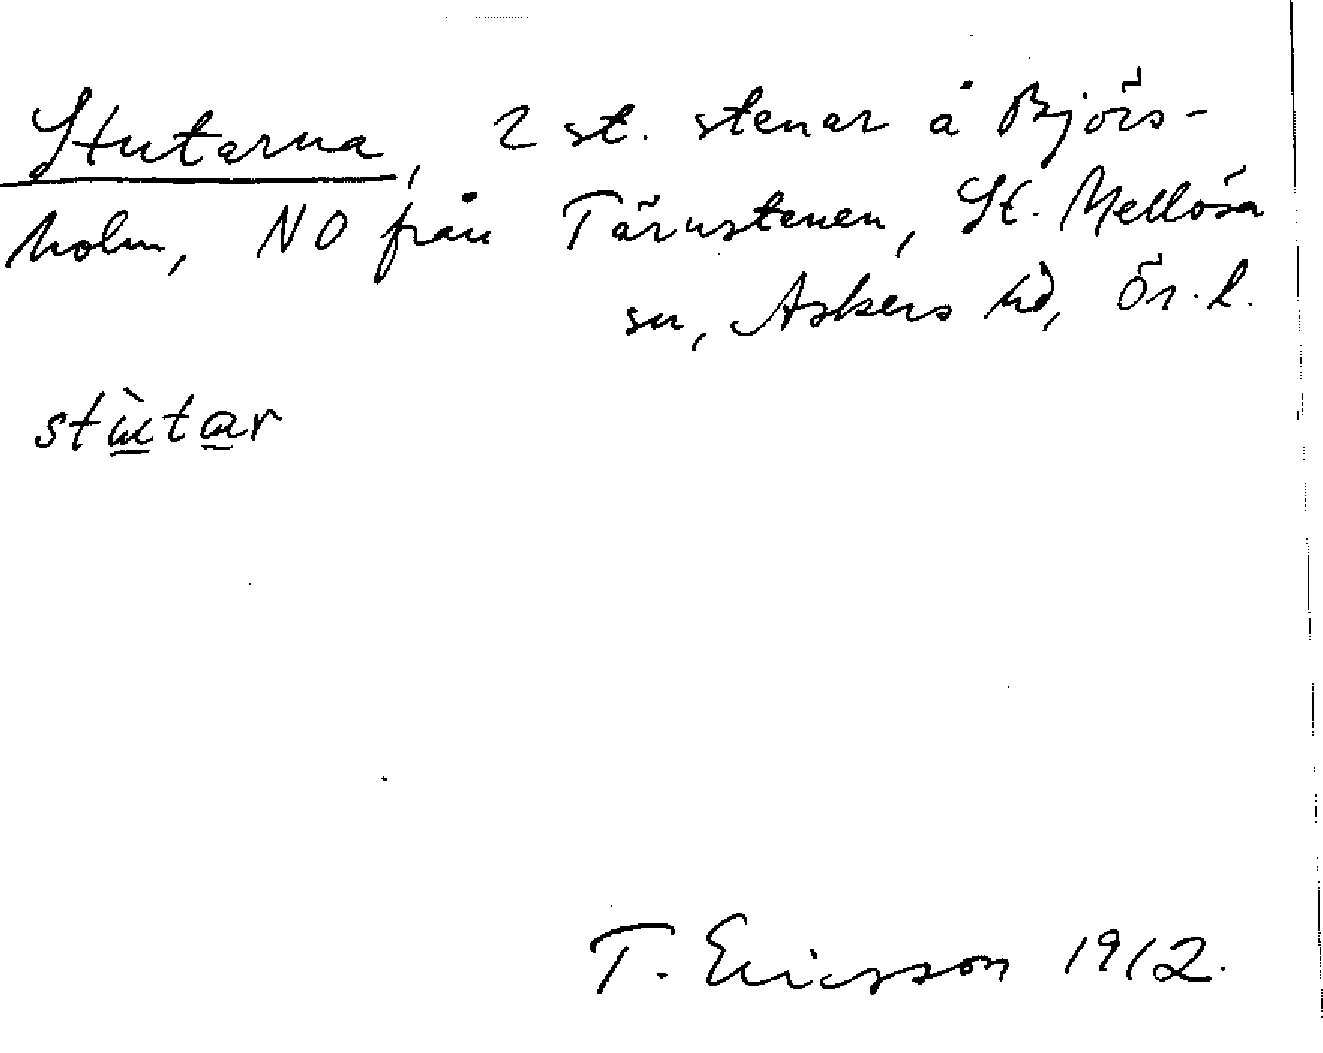 Stutarna, 2 st. stenar å Björs-
holm, NO från Tärnstenen, St. Mellösa
sn, Askers hd, Ör. l.
stùtar
T. Ericsson 1912.